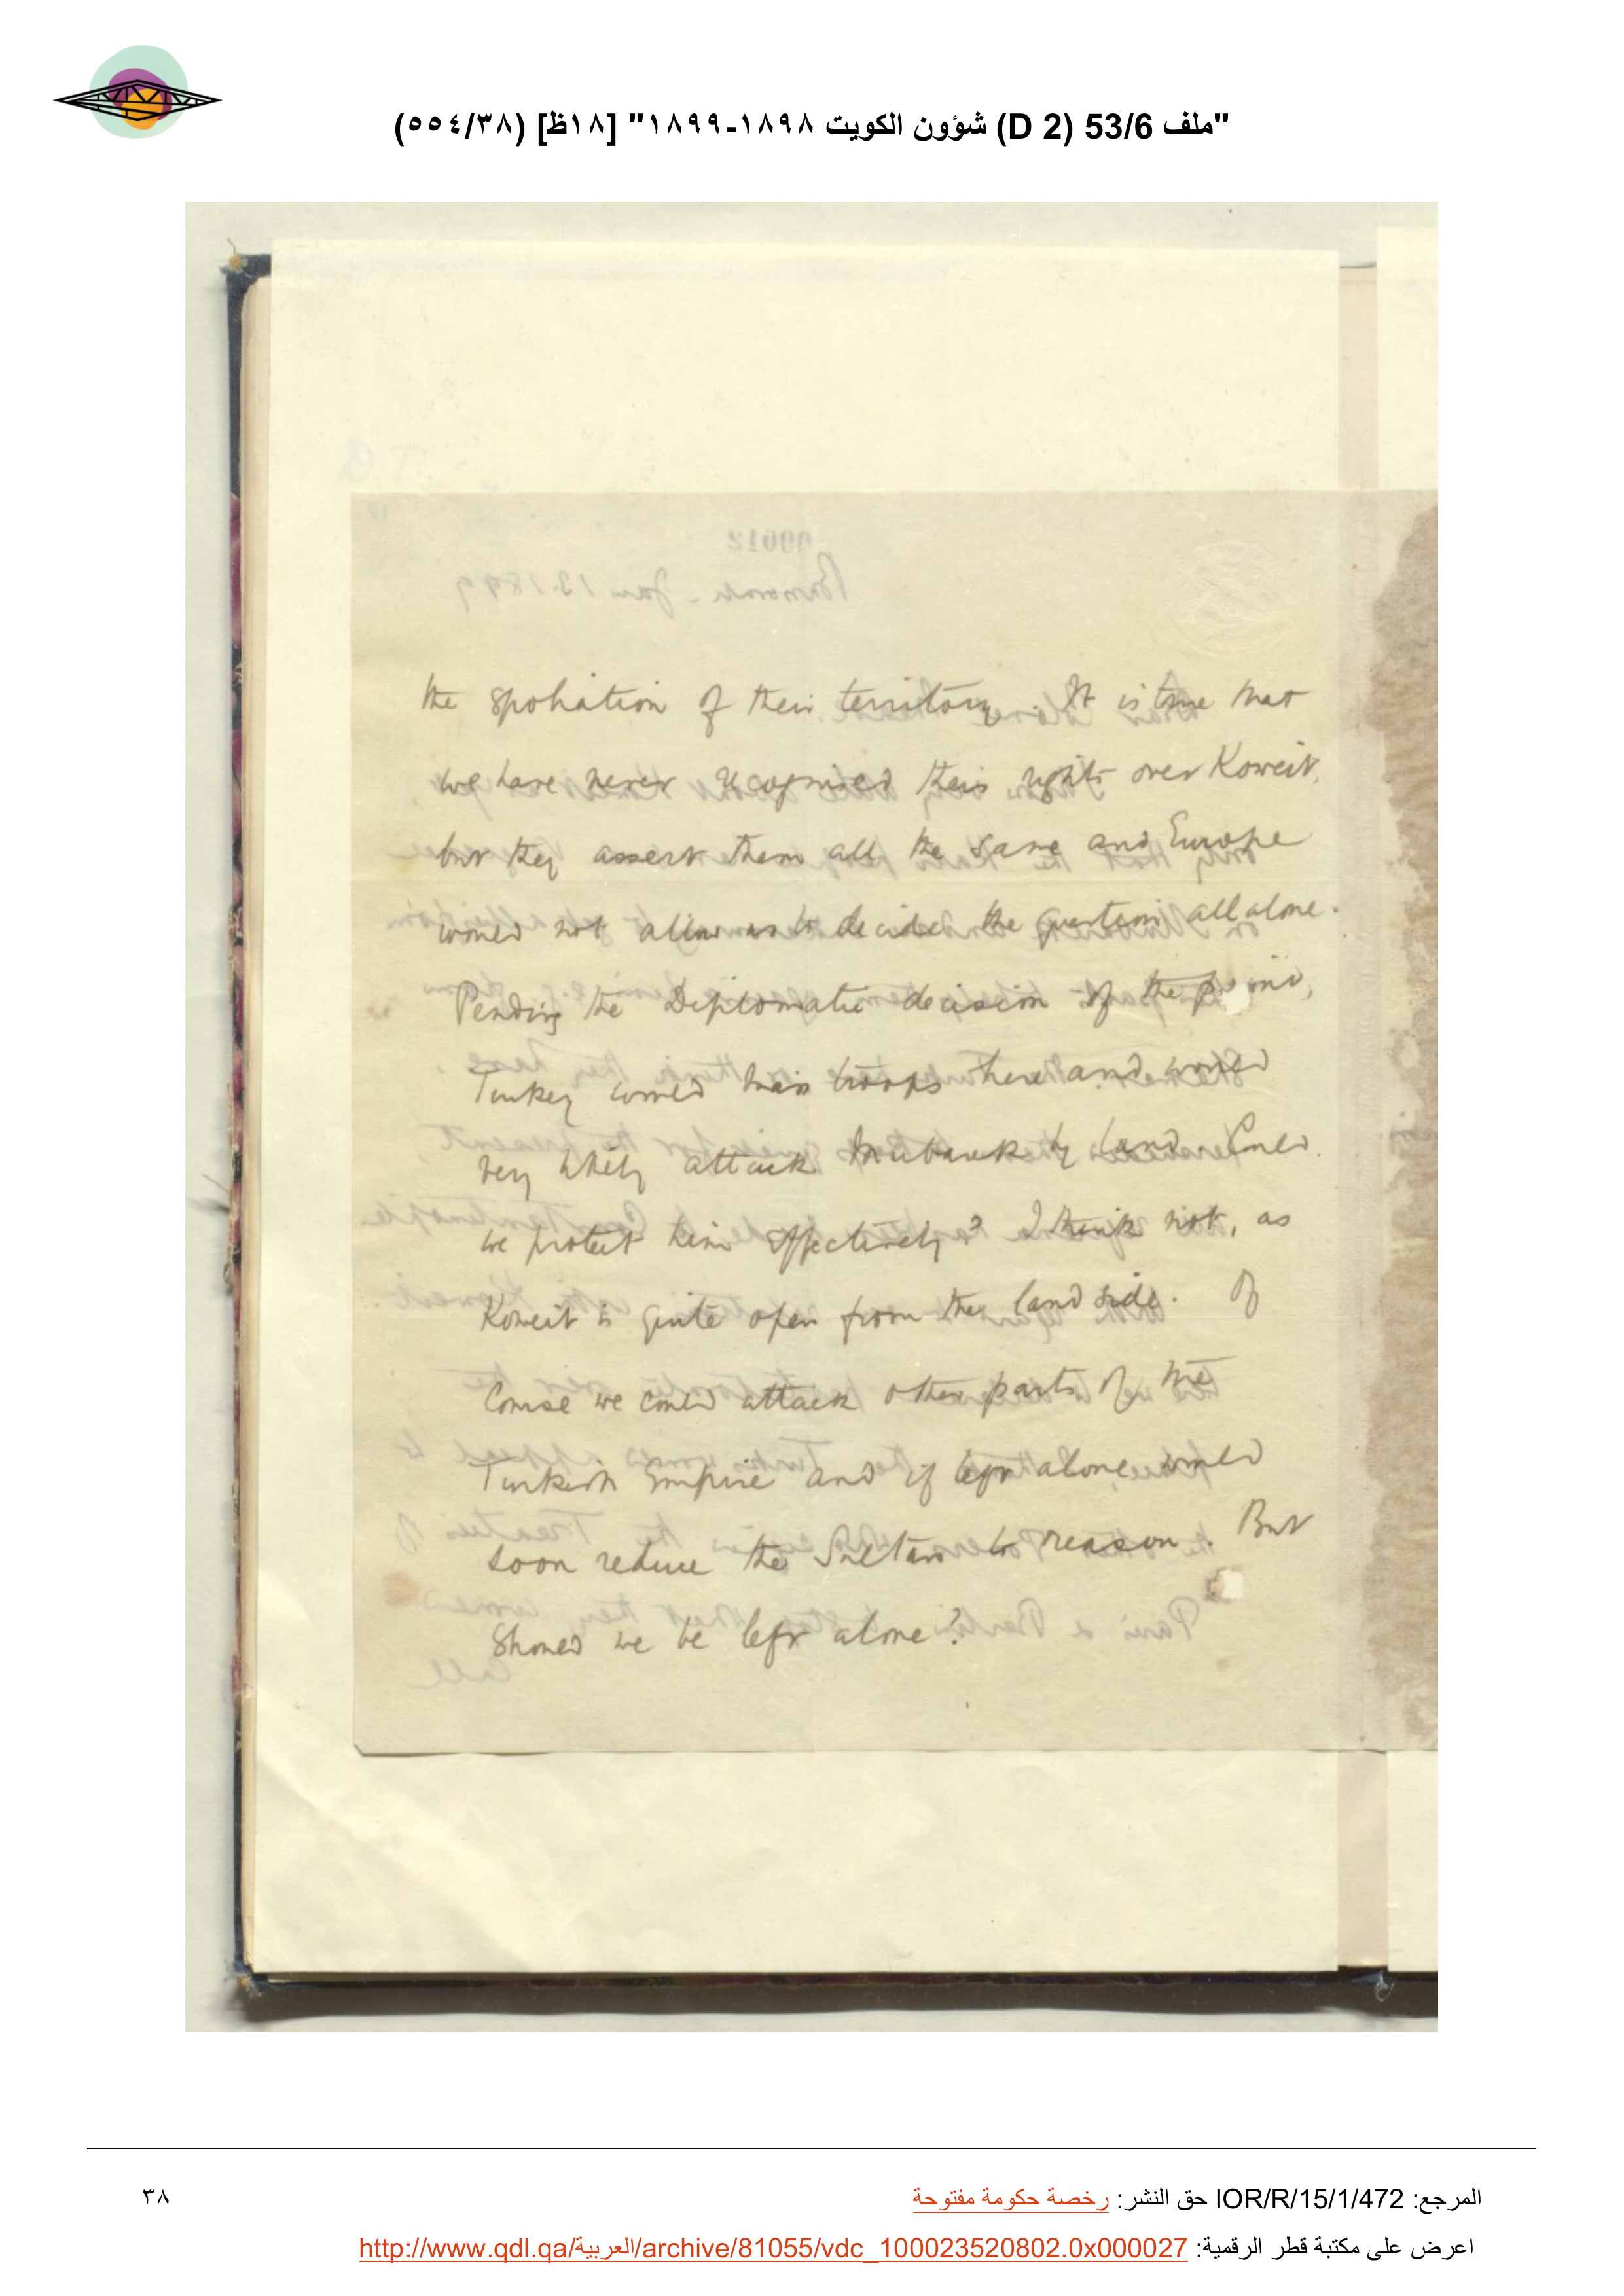 "ملف 53/6 (D 2) شؤون الكويت ١٨٩٨-١٨٩٩" [١٨ظ] (٥٥٤/٣٨)
the spoliation of their territory. It is true that
we have never recognised their rights over Koweit,
but they assert them all the same and Europe
would not allow us to decide the question all alone.
Pending the Diplomatic decision of the point,
Turkey would have troops there and would
very likely attack Mubarak by land. Could
we protect him effectively? I think not, as
Koweit is quite open from the land side. Of
Course we could attack other parts of the
Turkish Empire and if left alone, would
soon reduce the Sultan to reason. But
Should we be left alone?
المرجع: IOR/R/15/1/472 حق النشر: رخصة حكومة مفتوحة
٣٨
اعرض على مكتبة قطر الرقمية: http://www.qdl.qa/العربية/archive/81055/vdc_100023520802.0x000027